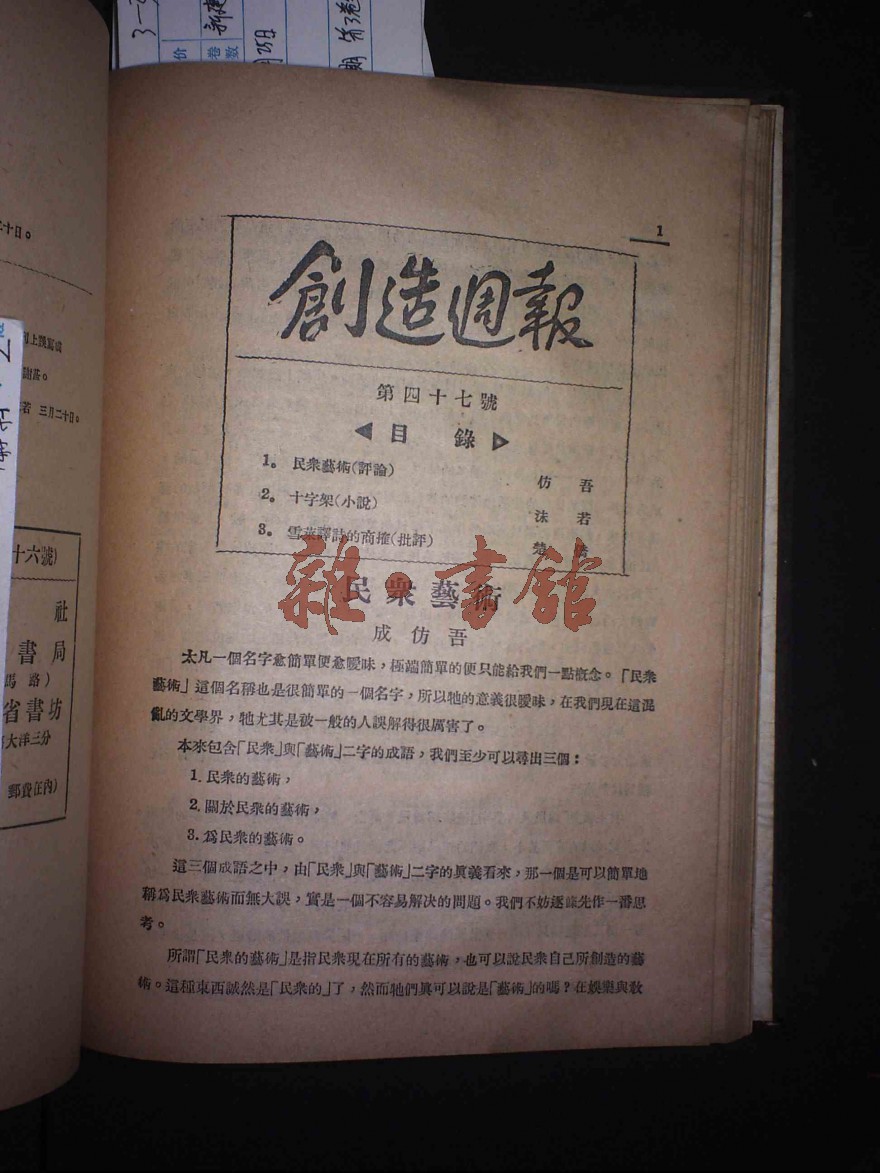 3一
价
卷
数
月25日
期
十日。
三月二十日。
十六號)
社
書局
馬路)
省書坊
大洋三分
郵費在內)
1
創造週報
第四十七號
◀目 錄▶
1。 民衆藝術(評論) 仿 吾
2。 十字架(小說) 沫 若
3。 雪萊譯詩的商搉(批評) 楚
民衆藝術
雜·書館
成 仿 吾
太凡一個名字愈簡單便愈曖昧,極端簡單的便只能給我們一點槪念。「民衆
藝術」這個名稱也是很簡單的一個名字,所以牠的意義很曖昧,在我們現在這混
亂的文學界,牠尤其是被一般的人誤解得很厲害了。
本來包含「民衆」與「藝術」二字的成語,我們至少可以尋出三個:
1. 民衆的藝術,
2. 關於民衆的藝術,
3. 爲民衆的藝術。
這三個成語之中,由「民衆」與「藝術」二字的眞義看來,那一個是可以簡單地
稱爲民衆藝術而無大誤,實是一個不容易解決的問題。我們不妨逐條先作一番思
考。
所謂「民衆的藝術」是指民衆現在所有的藝術,也可以說民衆自己所創造的藝
術。這種東西誠然是「民衆的」了,然而牠們眞可以說是「藝術」的嗎?在娛樂與敎